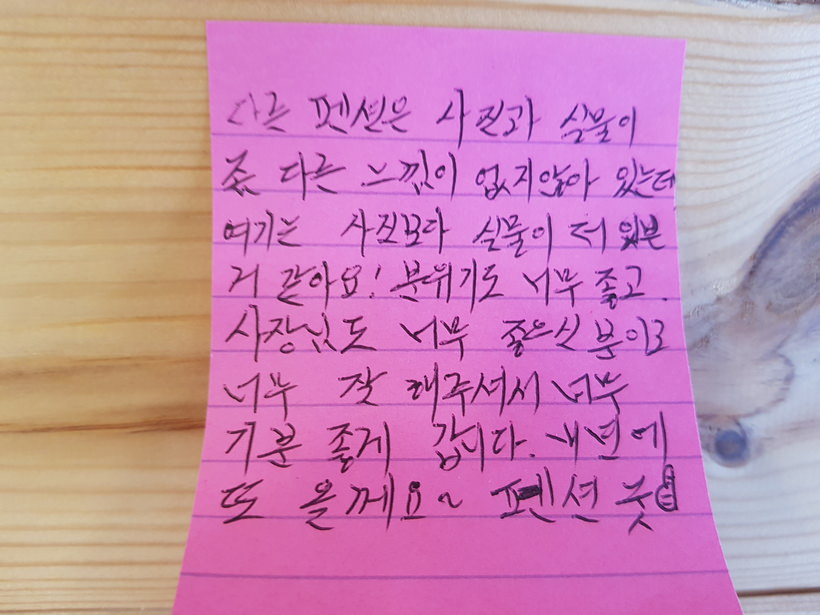 다른 펜션은 사진과 실물이
좀 다른 느낌이 없지않아 있는데
여기는 사진보다 실물이 더 이쁜
거 같아요! 분위기도 너무 좋고.
사장님도 너무 좋은신 분이고
너무 잘 해주셔서 너무
기분 좋게 갑니다. 내년에
또 올께요~ 펜션 굿